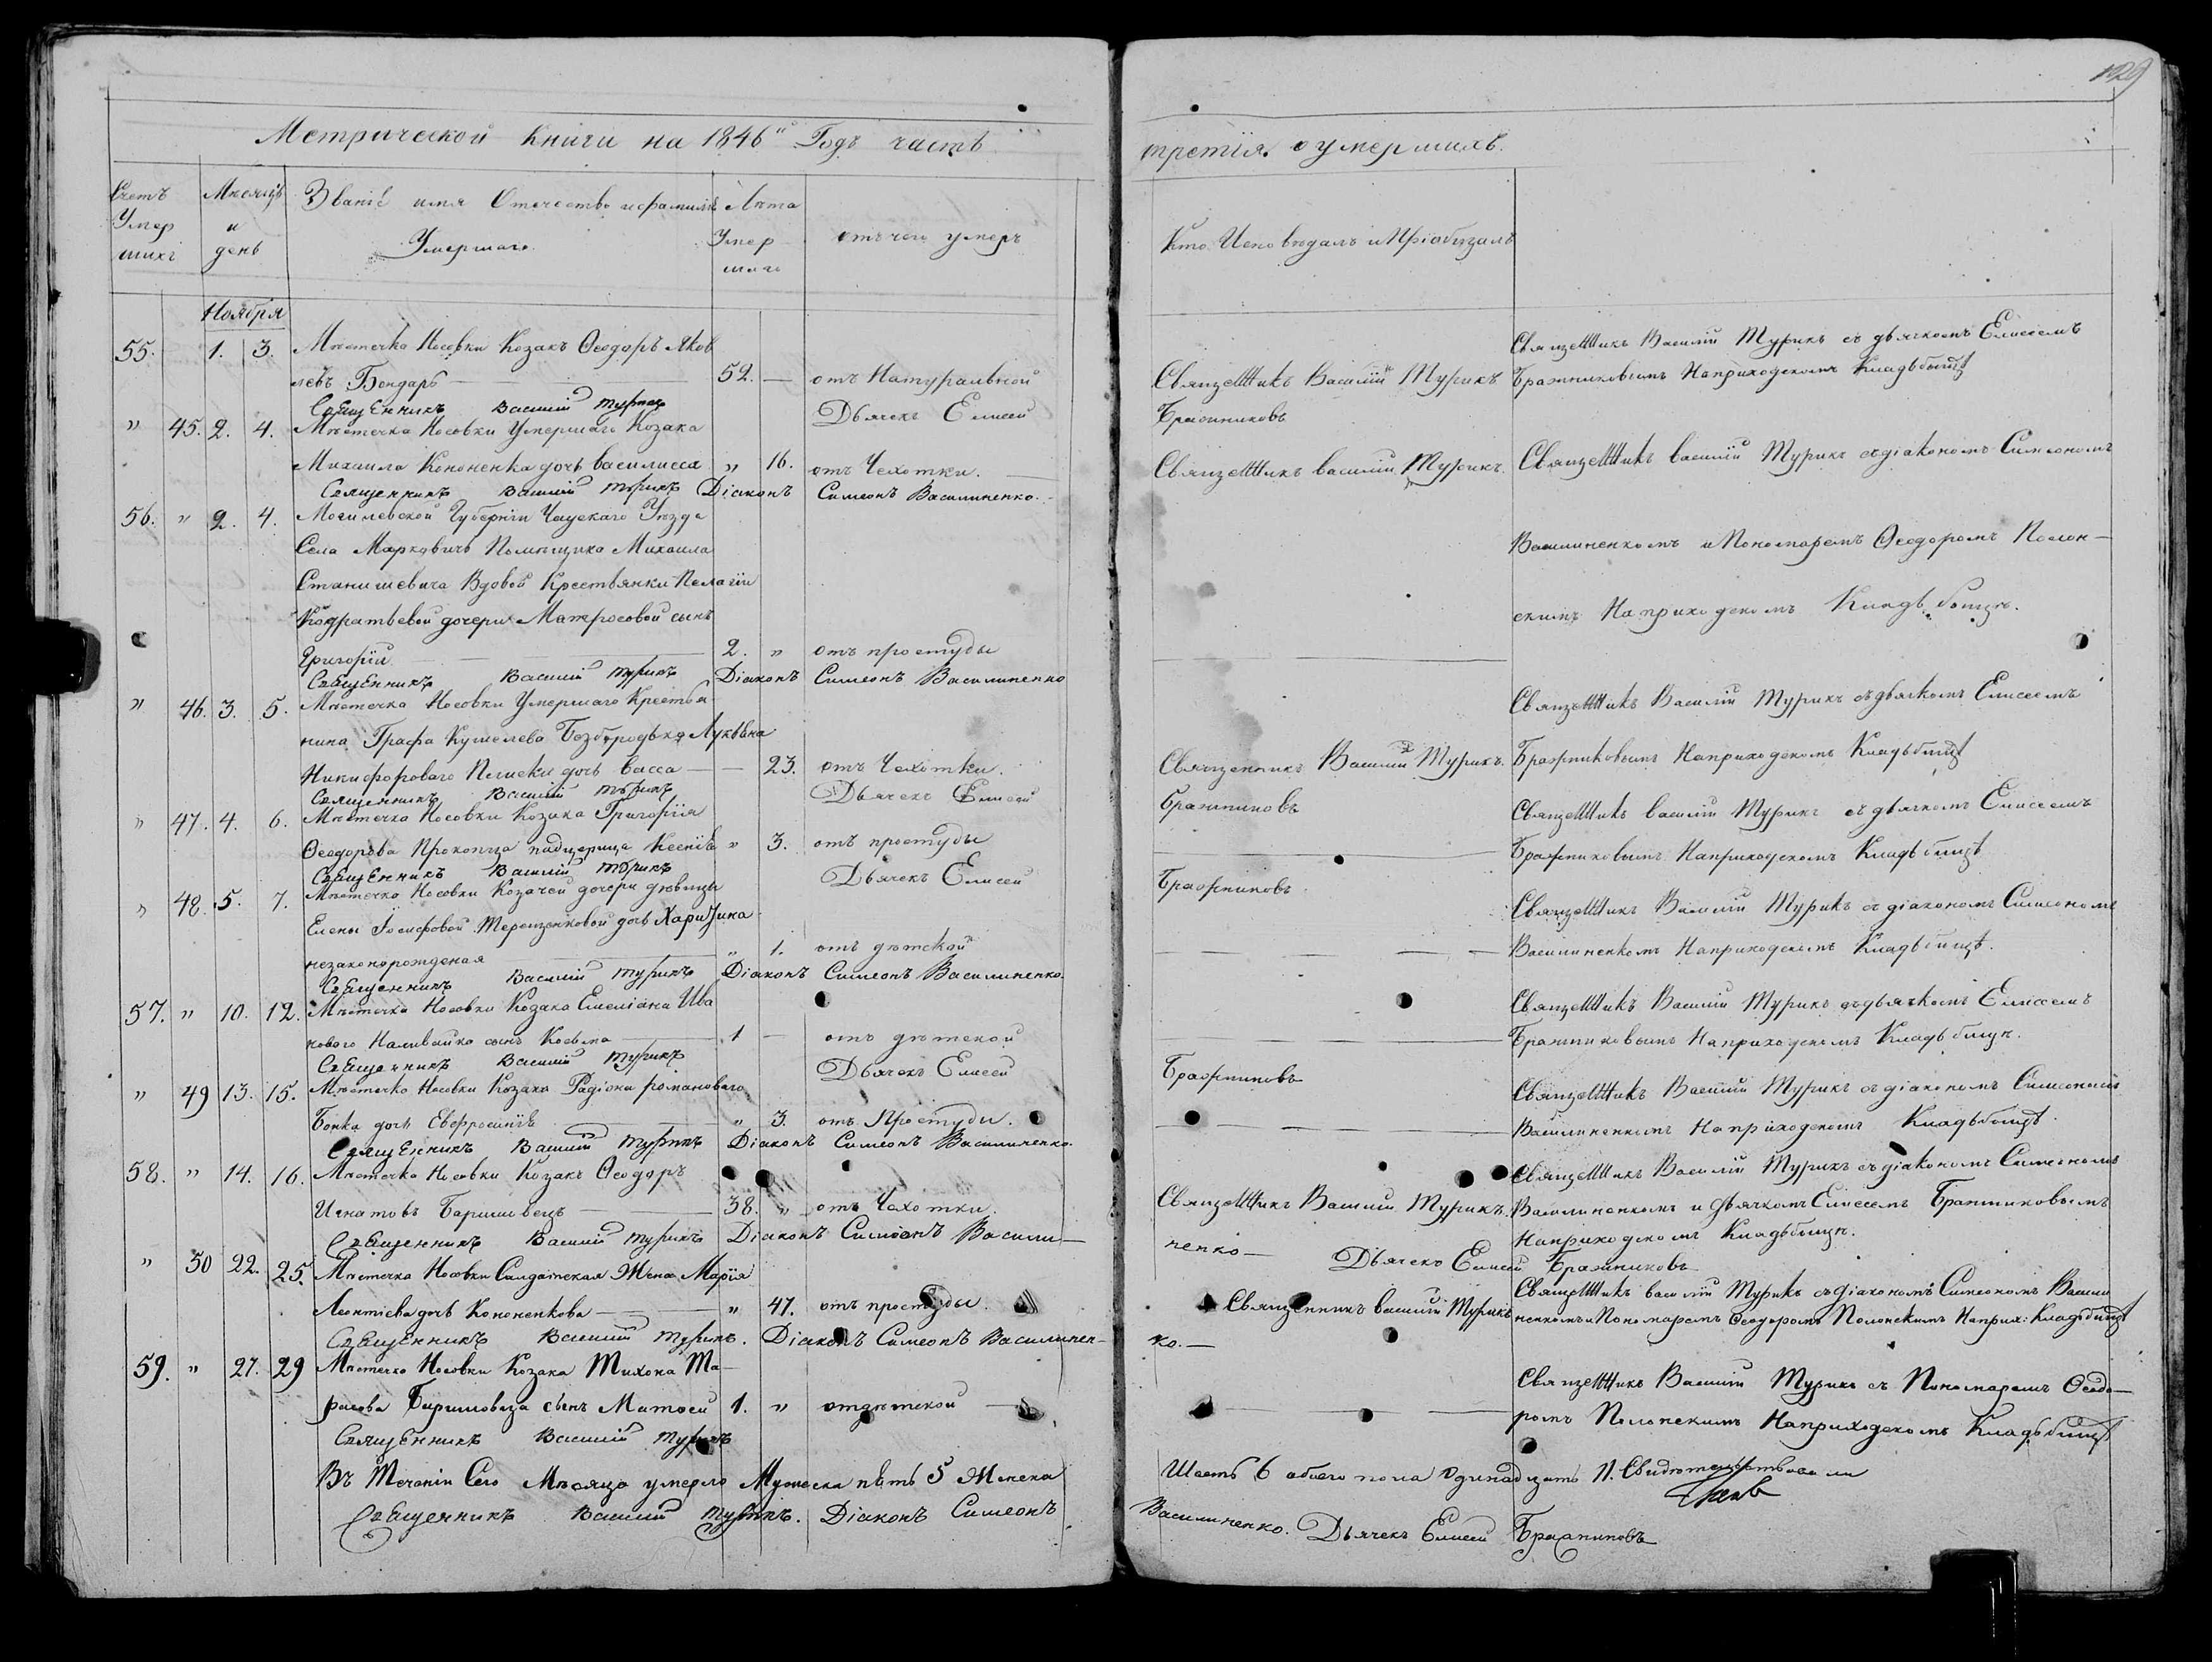 129
Метрической Книги на 1846й Годъ часть
третія о умершихъ.
Счетъ Умер шихъ
Мѣсяцъ и день
Званіе имя Отечество и фамилія Умершаго
Лѣта Умер шаго
отъ чего умеръ
Кто Исповѣдалъ и Пріобщалъ
Ноября
55. 1. 3. Мѣстечка Носовки Козакъ Ѳеодоръ Яков
левъ Бондарь 52. — отъ Натуральной
Священникъ Василій Турикъ Дьячекъ Елисей
Священникъ Василій Турикъ
Бражниковъ
Священникъ Василій Турикъ съ дьячкомъ Елисеемъ
Бражниковымъ На приходскомъ Кладбищѣ
" 45. 2. 4. Мѣстечка Носовки Умершаго Козака
Михаила Кононенка дочь Василисса " 16. отъ Чахотки.
Священникъ Василій Турикъ Діаконъ Симеонъ Василиненко.
Священникъ Василій Турикъ.
Священникъ Василій Турикъ съ діакономъ Симеономъ
56. " 2. 4. Могилевской Губерніи Чаускаго Уѣзда
Села Марковичъ Помѣщика Михаила
Станишевича Вдовой Крестьянки Пелагіи
Кодратьевой дочери Матросовой сынъ
Григорій 2. " отъ простуды
Священникъ Василій Турикъ Діаконъ Симеонъ Василиненко
Василиненкомъ и Пономаремъ Ѳеодоромъ Полон—
скимъ На приходскомъ Кладбищѣ.
" 46. 3. 5. Мѣстечка Носовки Умершаго Крестья
нина Графа Кушелева Безбородька Лукьяна
Никифороваго дочь Васса — 23. отъ Чахотки.
Священникъ Василій Турикъ Дьячекъ Елисей
Священникъ Василій Турикъ.
Бражниковъ
Священникъ Василій Турикъ съ дьячкомъ Елисеемъ
Бражниковымъ На приходскомъ Кладбищѣ
" 47. 4. 6. Мѣстечка Носовки Козака Григорія
Ѳеодорова Прокопца падчерица Ксенія " 3. отъ простуды
Священникъ Василій Турикъ Дьячекъ Елисей
Бражниковъ
Священникъ Василій Турикъ съ дьячкомъ Елисеемъ
Бражниковымъ На приходскомъ Кладбищѣ
" 48. 5. 7. Мѣстечка Носовки Козачей дочери дѣвицы
Елены Іосифовой Терещенковой дочь Харитина
незаконорожденая " 1. отъ дѣтской
Священникъ Василій Турикъ Діаконъ Симеонъ Василиненко.
Священникъ Василій Турикъ съ діакономъ Симеономъ
Василиненкомъ На приходскомъ Кладбищѣ.
57. " 10. 12. Мѣстечка Носовки Козака Емеліана Ива
нового Наливайко сынъ Косьма 1 — отъ дѣтской
Священникъ Василій Турикъ Дьячекъ Елисей
Бражниковъ
Священникъ Василій Турикъ съ дьячкомъ Елисеемъ
Бражниковымъ На приходскомъ Кладбищѣ.
" 49 13. 15. Мѣстечка Носовки Козака Радіона романоваго
дочь Евфросинія " 3. отъ Простуды.
Священникъ Василій Турикъ Діаконъ Симеонъ Василиненко.
Священникъ Василій Турикъ съ діакономъ Симеономъ
Василиненкомъ На приходскомъ Кладбищѣ.
58. " 14. 16. Мѣстечка Носовки Козакъ Ѳеодоръ
Игнатовъ Баришовецъ 38. " отъ Чахотки.
Священникъ Василій Турикъ Діаконъ Симеонъ Васили—
Священникъ Василій Турикъ.
ненко— Дьячекъ Елисей Бражниковъ
Священникъ Василій Турикъ съ діакономъ Симеономъ
Василиненкомъ и дьячкомъ Елисеемъ Бражниковымъ
На приходскомъ Кладбищѣ.
" 50 22. 25. Мѣстечка Носовки Салдатская Жена Марія
Леонтіева дочь Кононенкова " 47. отъ простуды.
Священникъ Василій Турикъ. Діаконъ Симеонъ Василинен—
Священникъ Василій Турикъ
ко.—
Священникъ Василій Турикъ съ діакономъ Симеономъ Васили
ненкомъ и Пономаремъ Ѳеодоромъ Полонскимъ На прих: Кладбищѣ
59. " 27. 29 Мѣстечка Носовки Козака Тихона Та—
расова Баришовца сынъ Матѳей 1. " отъ дѣтской
Священникъ Василій Турикъ
Священникъ Василій Турикъ съ Пономаремъ Ѳеодо—
ромъ Полонскимъ На приходскомъ Кладбищѣ
Въ Теченіи Сего Мѣсяца умерло Мужеска пять 5 Женска
Шесть 6 обоего пола одинадцать 11. Свидѣтельствовали
Священникъ Василій Турикъ. Діаконъ Симеонъ
Василиненко. Дьячекъ Елисей Бражниковъ